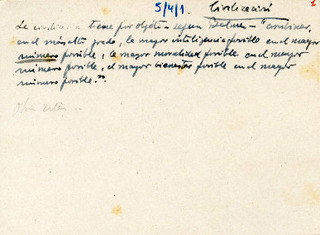 5/4/1. Civilización 1
La civilización tiene por objeto - según - "combinar,
en el más alto grado, la mayor inteligencia posible en el mayor
número posible, la mayor moralidad posible en el mayor
número posible, el mayor bienestar posible en el mayor
número posible."